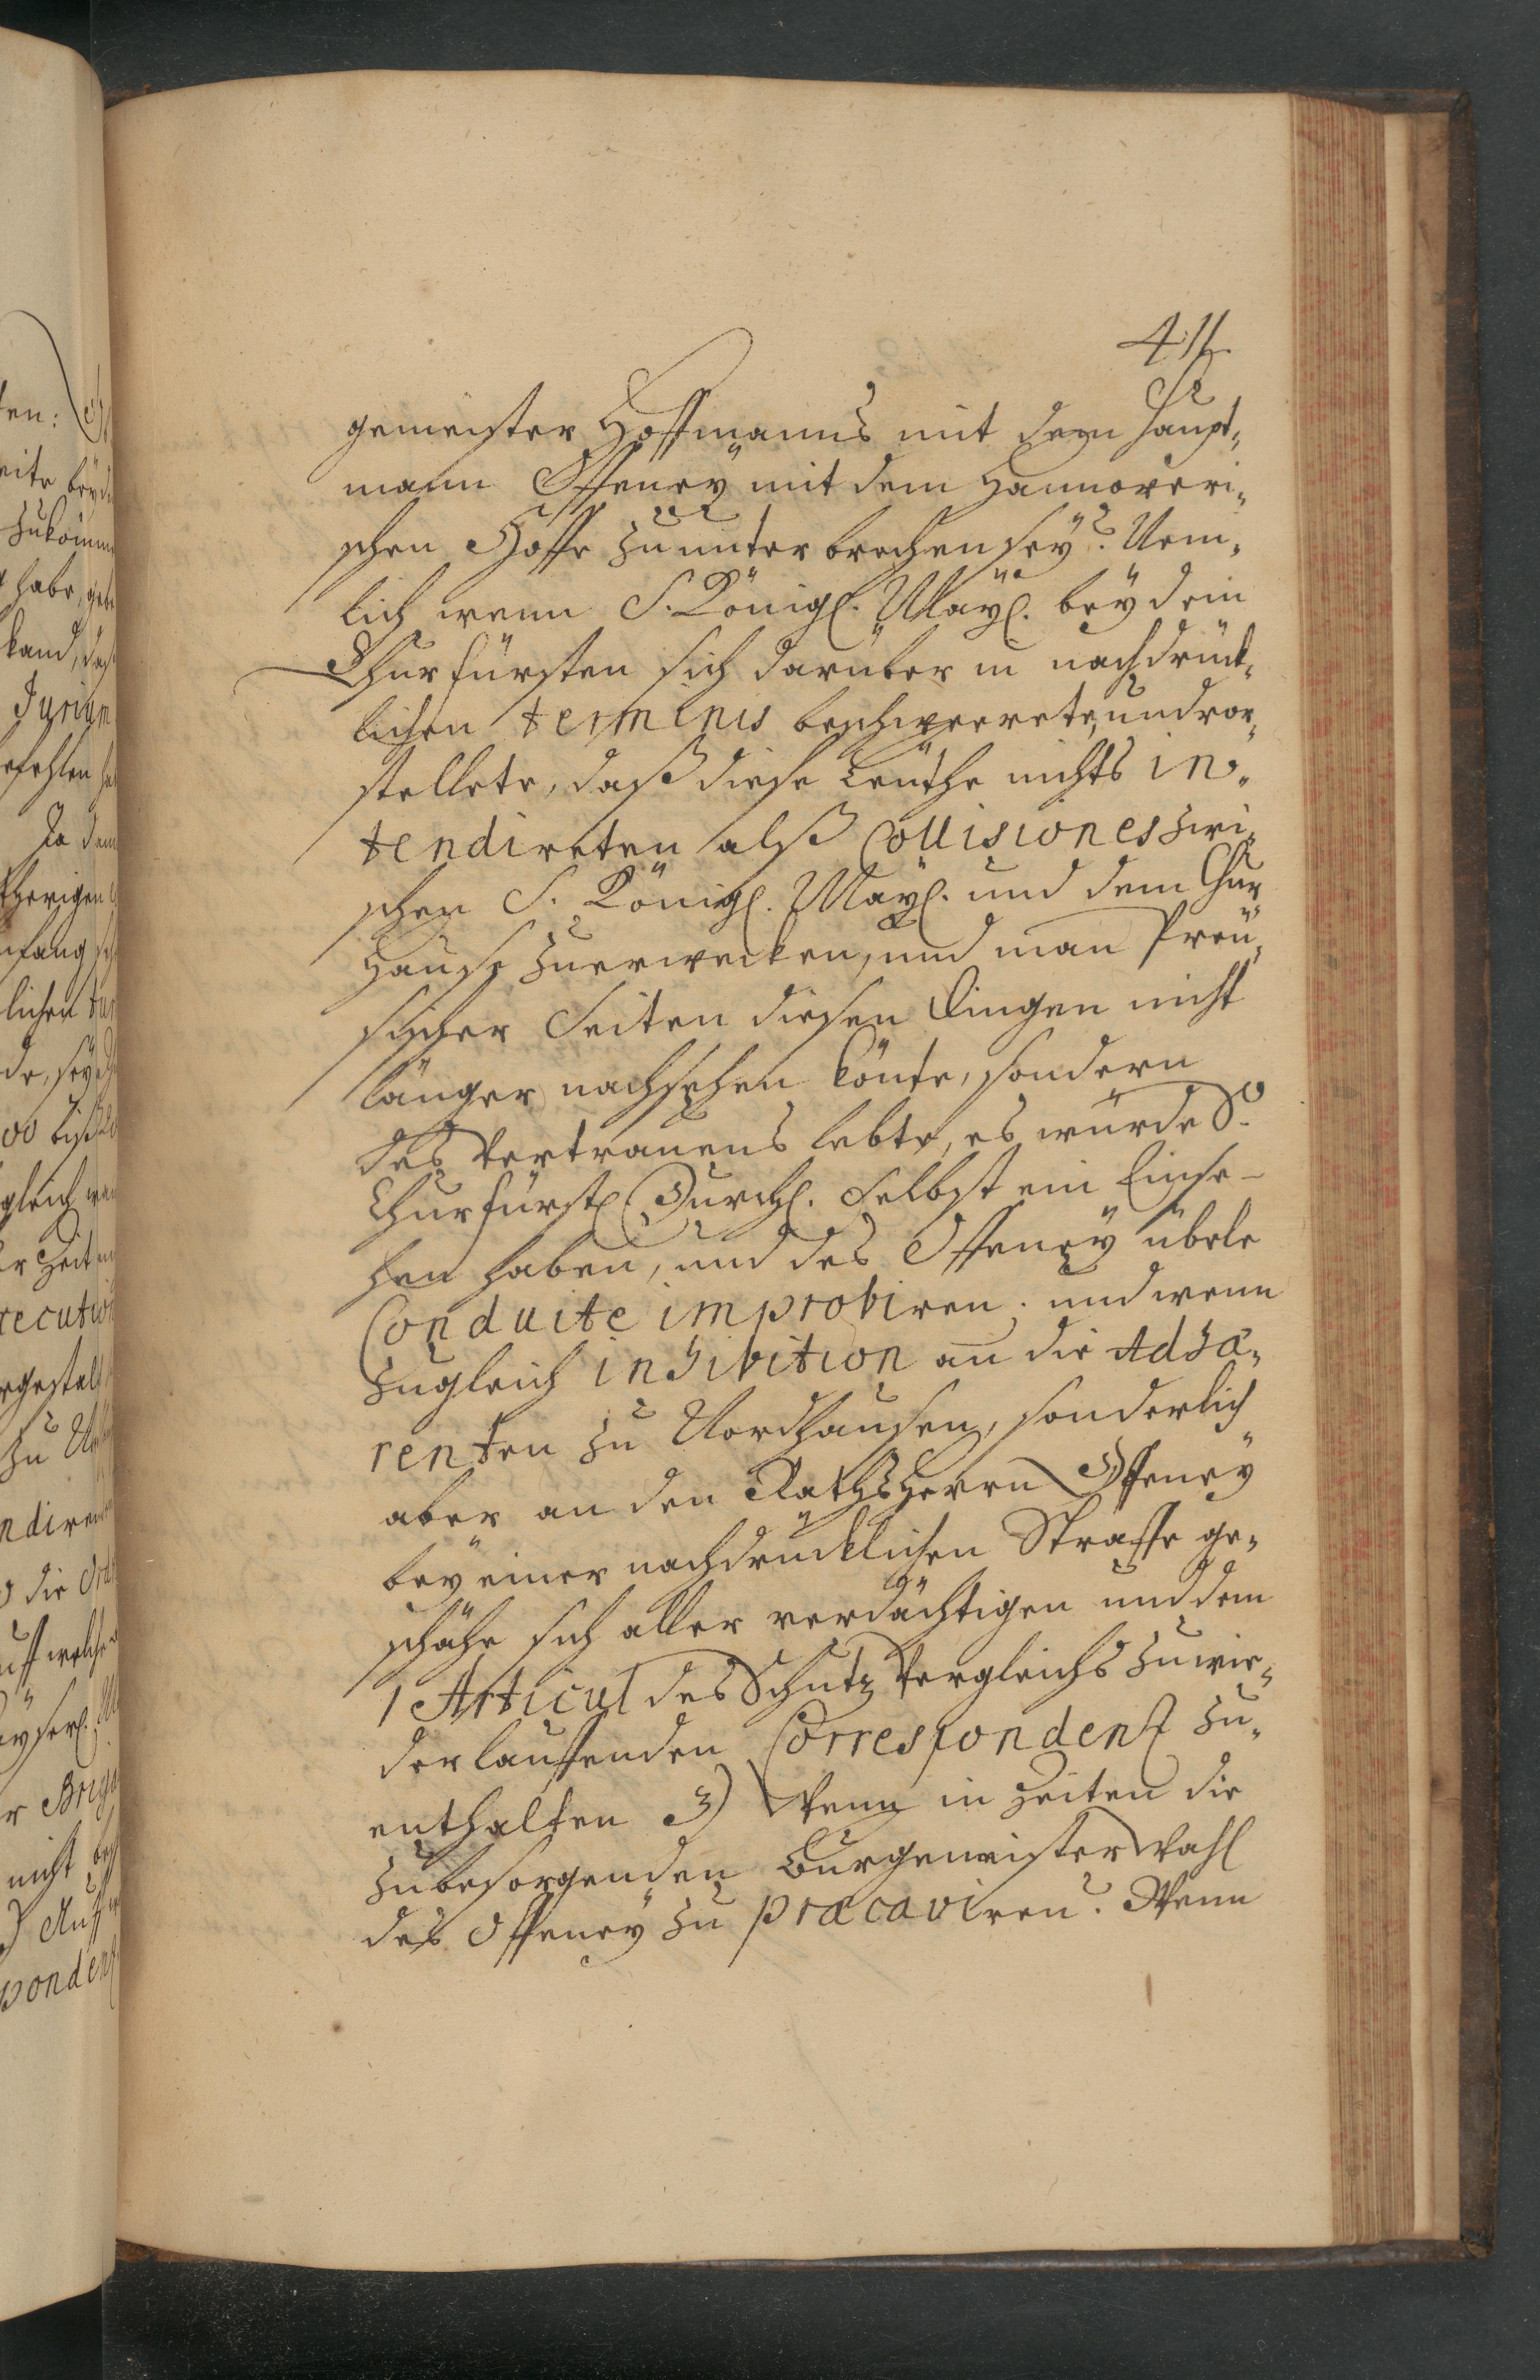 411
gemeister Hoffmanns mit dem Haupt,,
mann Offeney mit dem Hannoveri,,
schen Hoffe zuunterbrechen sey? Nem,,
lich wenn S. Königl. Mayl. bey dem
Churfürsten sich darüber in nachdrück,,
lichen terminis beschweerete, und vor,,
stellete, daß diese Leuthe nichts in,,
tendireten alß Collisiones zwi,,
schen S. Königl. Mayl. und dem Chur
Hause zuerwecken, und man Preü,,
sischer Seiten diesen Dingen nicht
länger nachsehen könte, sondern
des Vertrauens lebte, es würde S.
Churfürstl Durchl. selbst ein Einse-
hen haben, und des Offeney übele
Conduite improbiren; und wenn
zugleich inhibition an die Adhæ,,
renten zu Nordhausen, sonderlich
aber an den Rathsherrn Offeney
bey einer nachdrücklichen Straffe ge,,
schähe sich aller verdächtigen und dem
1 Articul des Schutz Vergleichs zuwie,,
derlauffenden Correspondentz zu,,
enthalten 3) Wenn in Zeiten die
zubesorgenden Burgemeister Wahl
des Offeney zu præcaviren? Wenn